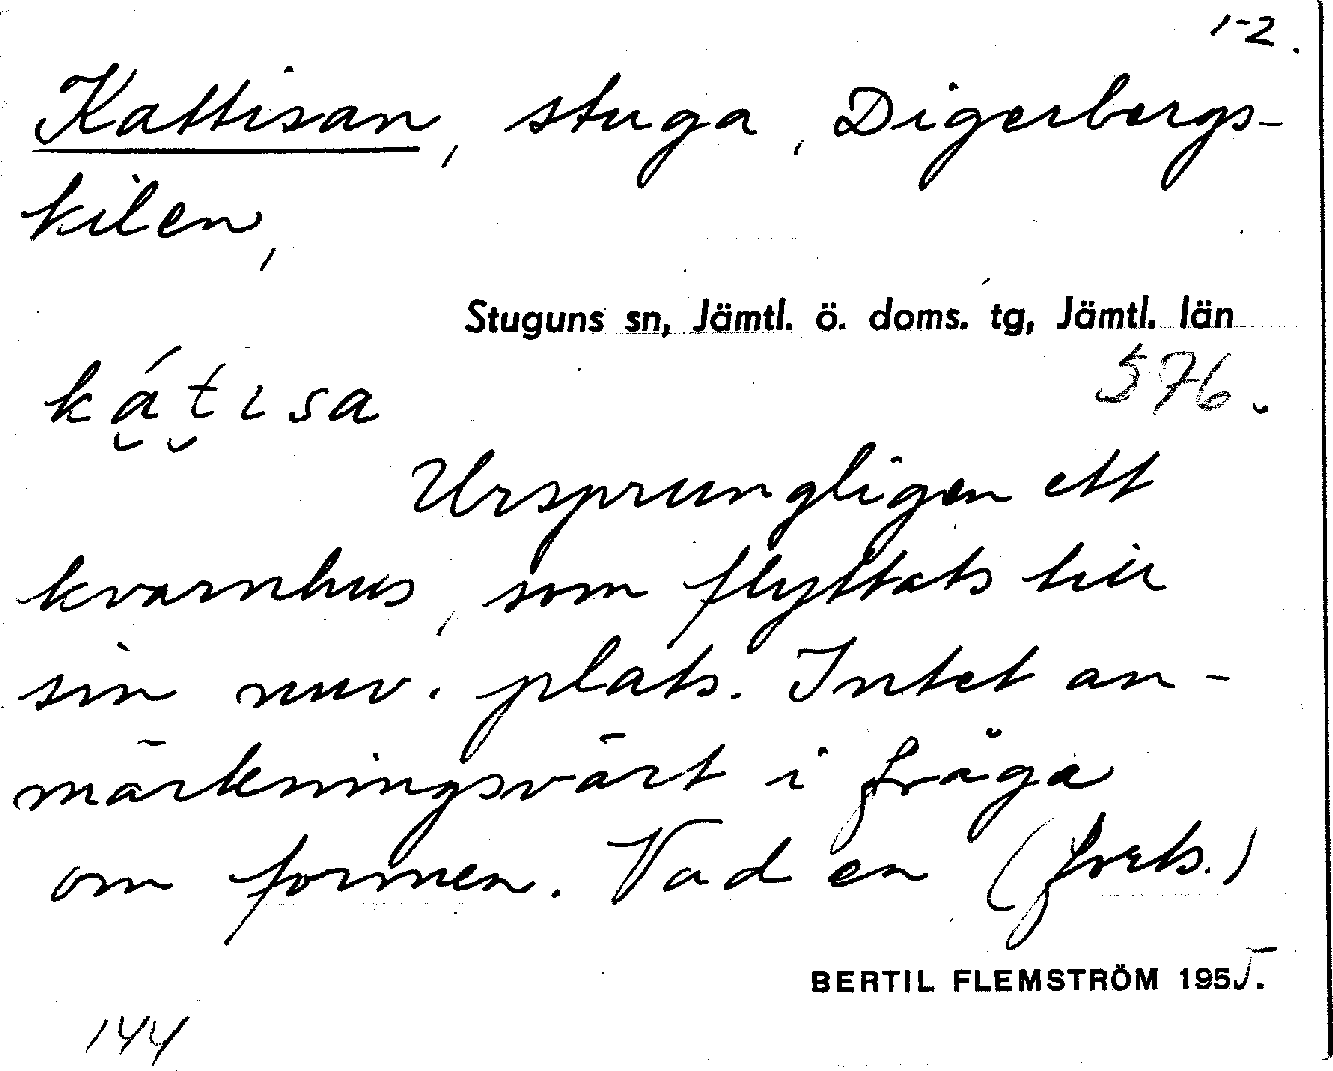 1-2.
Kattisan, stuga, Digerbergs-
kilen,
Stuguns sn, Jämtl. ö. doms. tg, Jämtl. län
kátisa 576.
Ursprungligen ett
kvarnhus, som flyttats till
sin nuv. plats. Intet an-
märkningsvärt i fråga
om formen. Vad en (forts.)
BERTIL FLEMSTRÖM 1955.
144